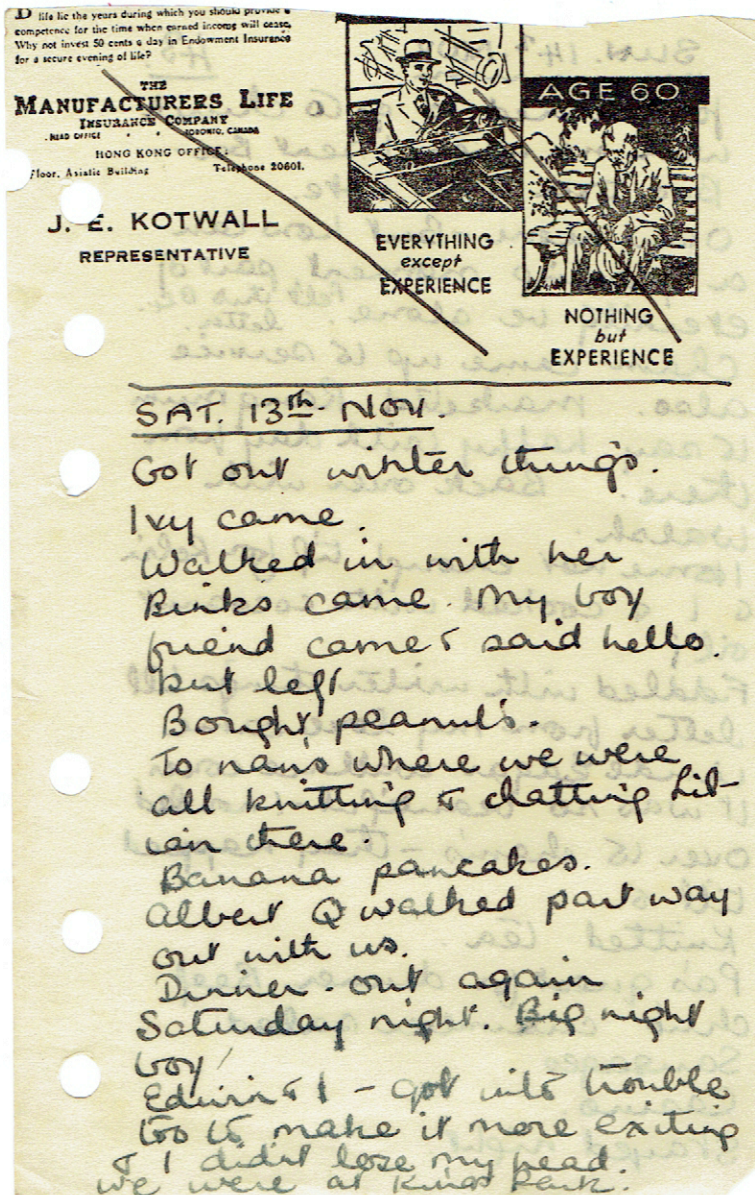 life lie the years during which you should provide a
competence for the time when earned income will cease.
Why not invest 50 cents a day in Endowment Insurance
for a secure evening of life?
THE
MANUFACTURERS LIFE
INSURANCE COMPANY
HEAD OFFICE · · TORONTO, CANADA
HONG KONG OFFICE,
Floor, Asiatic Building Telephone 20601.
J. E. KOTWALL
REPRESENTATIVE
EVERYTHING
except
EXPERIENCE
AGE 60
NOTHING
but
EXPERIENCE
SAT. 13th NOV.
Got out winter things.
Ivy came.
Walked in with her
Binks came. My boy
friend came & said hello.
but left
Bought peanuts.
To nan's where we were
all knitting & chatting Lil-
ian there.
Banana pancakes.
Albert Q walked part way
out with us.
Dinner - out again
Saturday night. Big night
boy!
Edwin & I - got into trouble
too to make it more exiting
& I didn't lose my head.
we were at Kings Park.